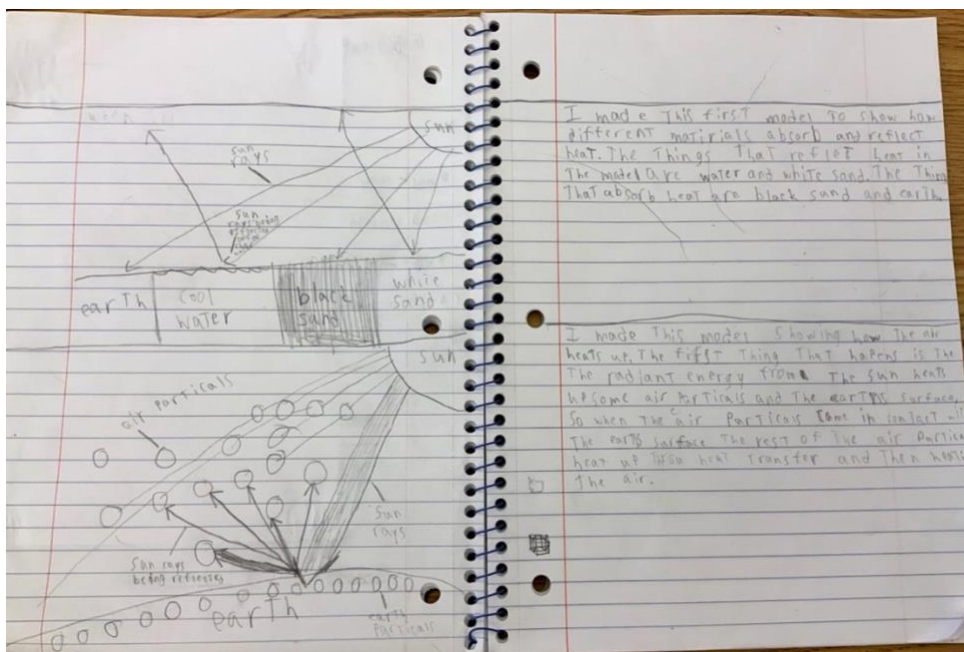 sun
sun
rays
sun
rays being
earth
cool
water
black
sand
white
sand
sun
air particals
sun
rays
sun rays
being
earth
earth
particals
I made This first model To show how
different matirials absorb and reflect
heat. The Things That reflet heat in
The model are water and white sand. The Thing
That absorb heat are black sand and earth.
I made This model showing how The air
heats up. The fifst Thing That hapens is The
The radiant energy from The sun heats
up some air particals and The earths surface,
So when The air particals come in contact
The earts surface The rest of The air
heat up heat Transfer and Then
The air.